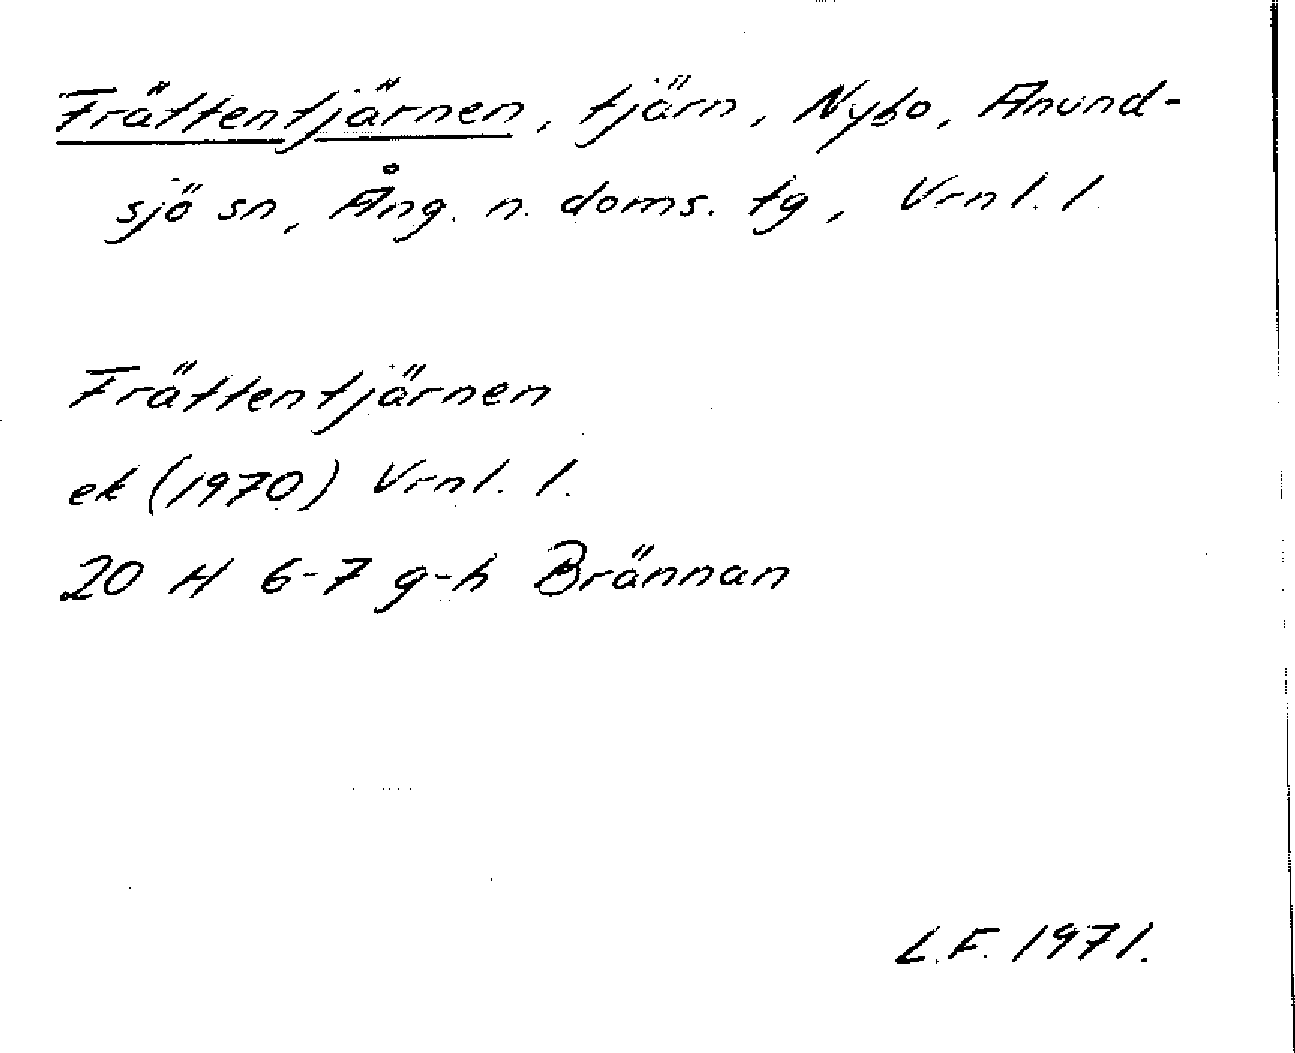 Frättentjärnen, tjärn, Nybo, Anund-
sjö sn, Ång. n. doms. tg, Vrnl. l.
Frättentjärnen
ek (1970) Vrnl. l.
20 H 6-7 g-h Brännan
L.F. 1971.